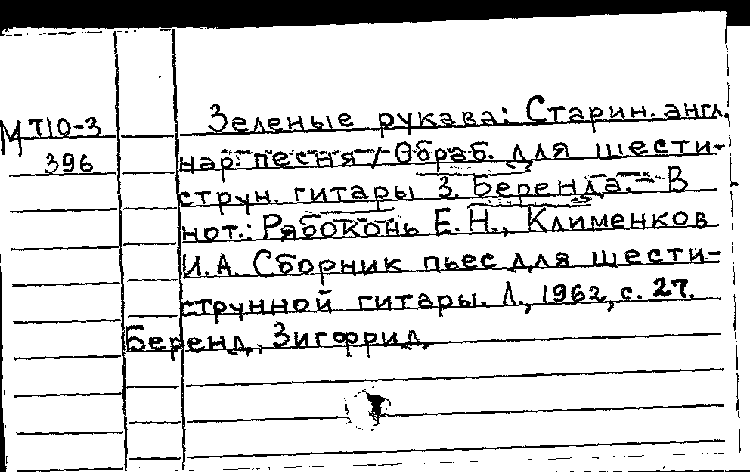 МТ10-3 Зеленые рукава: Старин. англ.
396 нар. песня / Обраб. для шести-
струн. гитары З. Беренда. – В
нот.: Рябоконь Е. Н., Клименков
И. А. Сборник пьес для шести-
струнной гитары. Л., 1962, с. 27.
Беренд, Зигфрид.